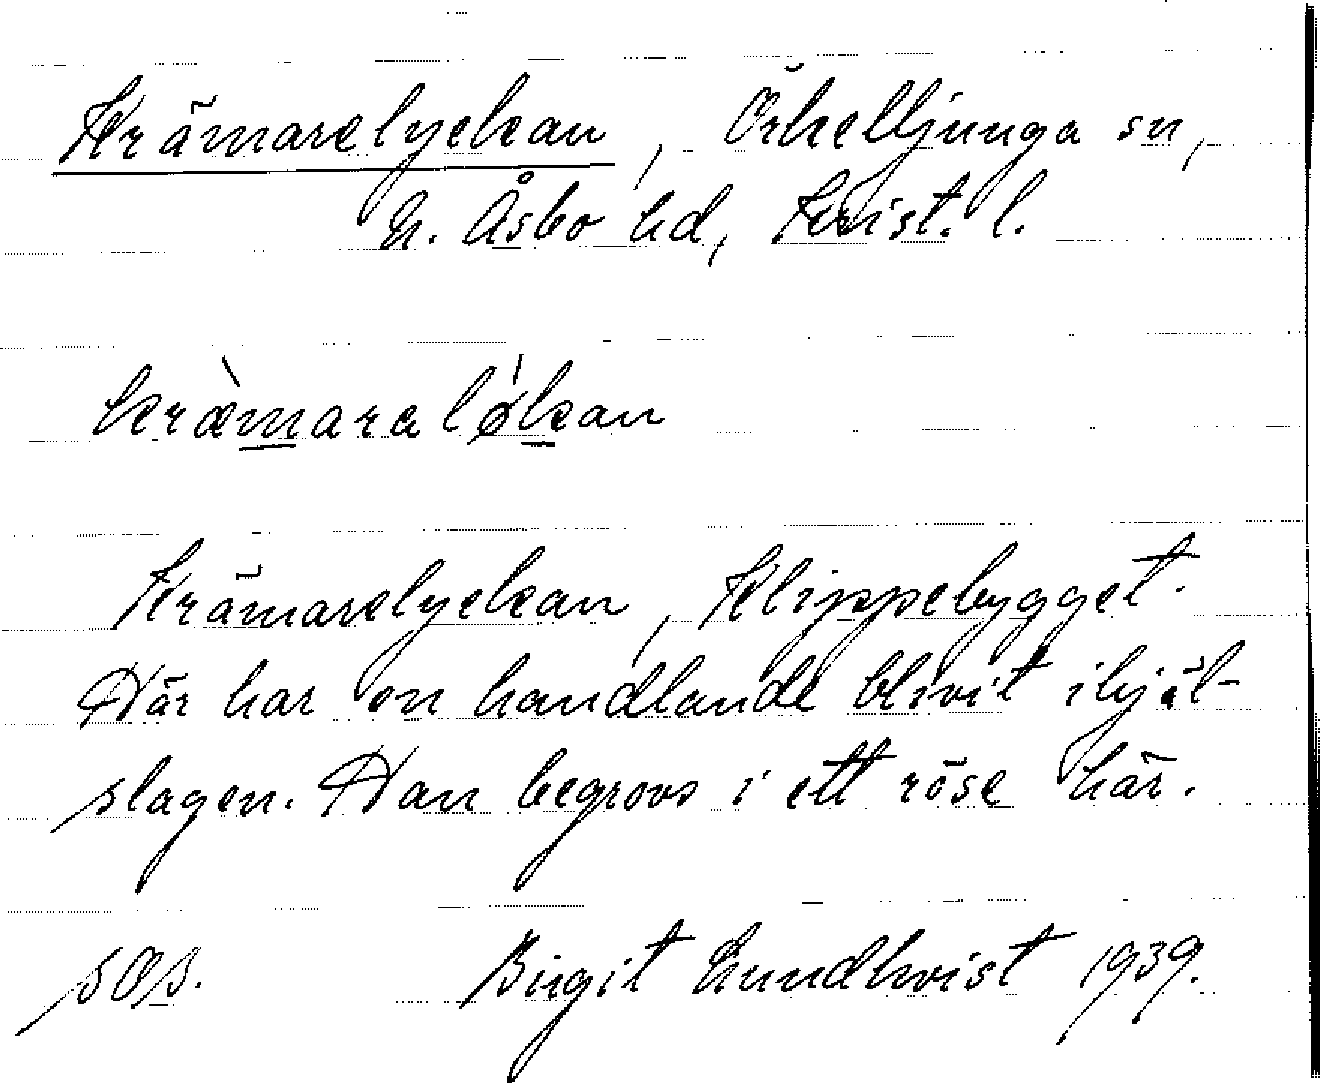 Krämarelyckan, Örkelljunga sn,
N. Åsbo hd, Krist. l.
kræ̀maralǿkan
Krämarelyckan, Klippebygget.
Här har en handlande blivit ihjäl-
slagen. Han begrovs i ett röse här.
Birgit Lundkvist 1939.